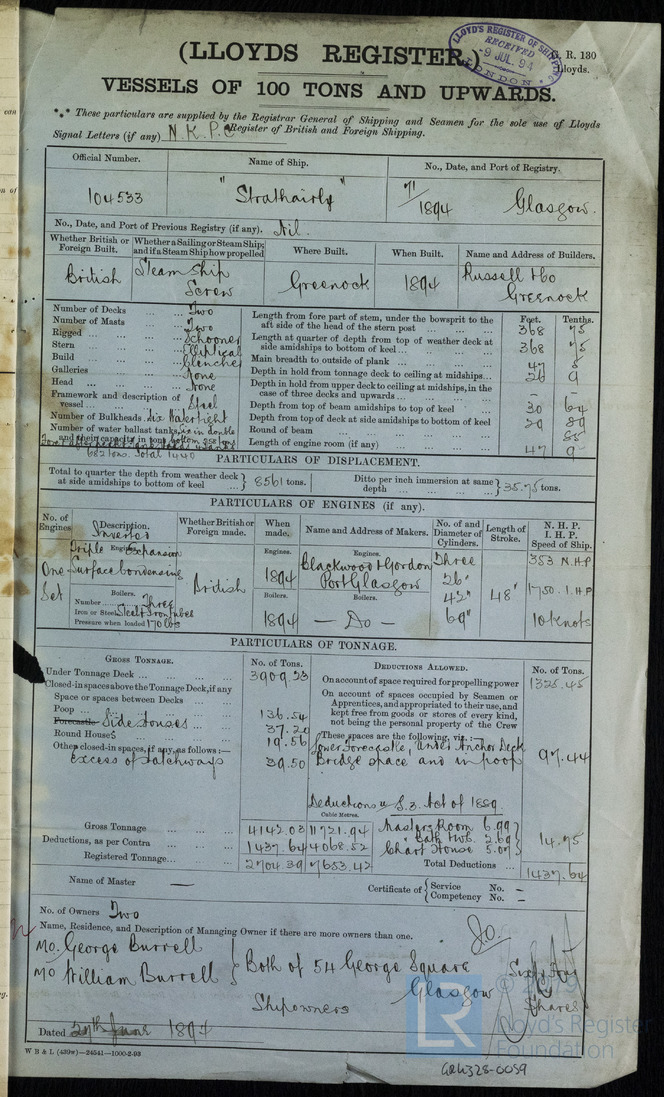 (LLOYDS REGISTER)
LLOYD'S REGISTER OF SHIPPING
RECEIVED
9 JUL. 94
LONDON
G. R. 130
Lloyds.
VESSELS OF 100 TONS AND UPWARDS.
*** These particulars are supplied by the Registrar General of Shipping and Seamen for the sole use of Lloyds
Register of British and Foreign Shipping.
Signal Letters (if any) N.K.P.C
Official Number. Name of Ship. No., Date, and Port of Registry.
104533 "Strathairly" 71/1894 Glasgow.
No., Date, and Port of Previous Registry (if any). Nil.
Whether British or Foreign Built. Whether a Sailing or Steam Ship; and if a Steam Ship how propelled Where Built. When Built. Name and Address of Builders.
British Steam Ship Screw Greenock 1894 Russell & Co Greenock
Number of Decks Two
Number of Masts Two
Rigged Schooner
Stern Elliptical
Build Clencher
Galleries None
Head None
Framework and description of vessel Steel
Number of Bulkheads Six Watertight
Number of water ballast tanks, and their capacity in tons
682 tons. Total 1440
Feet. Tenths.
Length from fore part of stem, under the bowsprit to the aft side of the head of the stern post 368 75
Length at quarter of depth from top of weather deck at side amidships to bottom of keel 368 75
Main breadth to outside of plank 47 5
Depth in hold from tonnage deck to ceiling at midships 26 9
Depth in hold from upper deck to ceiling at midships, in the case of three decks and upwards - -
Depth from top of beam amidships to top of keel 30 64
Depth from top of deck at side amidships to bottom of keel 29 89
Round of beam 85
Length of engine room (if any) 47 9
PARTICULARS OF DISPLACEMENT.
Total to quarter the depth from weather deck at side amidships to bottom of keel } 8561 tons. Ditto per inch immersion at same depth } 35.75 tons.
PARTICULARS OF ENGINES (if any).
No. of Engines. Description. Whether British or Foreign made. When made. Name and Address of Makers. No. of and Diameter of Cylinders. Length of Stroke. N. H. P. I. H. P. Speed of Ship.
One Set
Inverted
Engines.
Triple Expansion
Surface Condensing
Boilers.
Number Three
Iron or Steel Steel & Iron tubes
Pressure when loaded 170 lbs
British
Engines.
1894
Boilers.
1894
Engines.
Blackwood & Gordon
Port Glasgow
Boilers.
— Do —
Three
26"
42"
69"
48"
353 N.H.P
1750 I.H.P
10 Knots
PARTICULARS OF TONNAGE.
GROSS TONNAGE. No. of Tons.
Under Tonnage Deck 3909.23
Closed-in spaces above the Tonnage Deck, if any
Space or spaces between Decks
Poop 136.54
Forecastle Side Houses 37.20
Round Houses 19.56
Other closed-in spaces, if any, as follows:—
Excess of Hatchways 39.50
Cubic Metres.
Gross Tonnage 4142.03 11721.94
Deductions, as per Contra 1437.64 4068.52
Registered Tonnage 2704.39 7653.42
DEDUCTIONS ALLOWED. No. of Tons.
On account of space required for propelling power 1325.45
On account of spaces occupied by Seamen or Apprentices, and appropriated to their use, and kept free from goods or stores of every kind, not being the personal property of the Crew
These spaces are the following, viz.:—
Lower Forecastle, Under Anchor Deck
Bridge space and in poop 97.44
Deductions u S.3. Act of 1889.
Masters Room 6.99
Bath &c. 2.69
Chart House 5.07
14.75
Total Deductions 1437.64
Name of Master —
Certificate of { Service No. – Competency No. –
No. of Owners Two
Name, Residence, and Description of Managing Owner if there are more owners than one.
Mo. George Burrell
Mo William Burrell
} Both of 54 George Square
Glasgow
Shipowners
Jo.
Sixty four
Shares
Dated 29th June 1894
W B & L (439w)—24541—1000-2-93
LR
© 2019
Lloyd's Register
Foundation
GLW328-0059